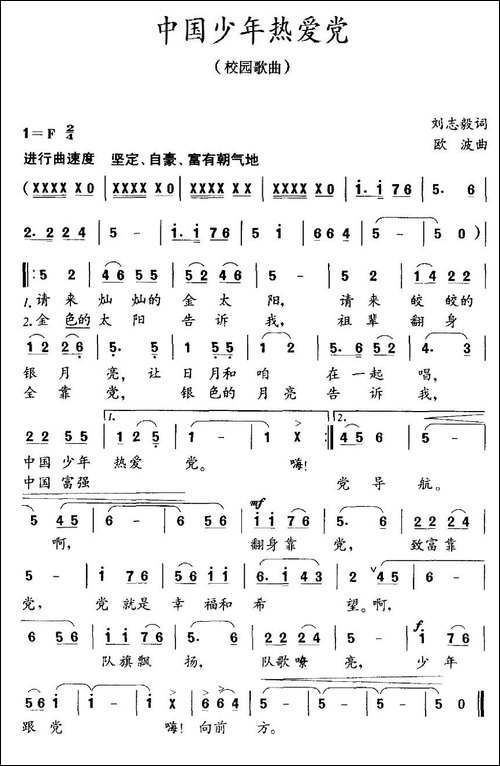 中国少年热爱党
（校园歌曲）
1=F 2/4
刘志毅词
欧 波曲
进行曲速度 坚定、自豪、富有朝气地
(XXXX X0 | XXXX X0 | XXXX X0 | XXXX X0 | i.i 76 | 5. 6 |
2.2 24 | 5 - | i.i 76 | 5 i | 664 | 5 - | 5 0) |
|: 5 2 | 46 55 | 52 46 | 5 - | 5 2 | 14 22 |
1.请 来 灿灿的 金 太 阳， 请 来 皎皎的
2.金 色的 太 阳 告 诉 我， 祖 辈 翻 身
12 26 | 565 | 2 12 | 1 - | 5.6 52 | 4. 3 |
银 月 亮， 让 日 月和 咱 在 一 起 唱，
全 靠 党， 银 色的 月 亮 告 诉 我，
1. 2.
22 55 | 125 | 1 - | 1 X :| 456 | 5 - |
中国 少年 热爱 党。 嗨！
中国 富强 党导 航。
mf
5 45 | 6 - | 6 56 | 5 - | ii 76 | 5. 6 | 22 24 |
啊， 翻身靠 党， 致富靠
5 - | i 76 | 56 56 | 6.i 43 | 2. 0 | 2 V45 |
党， 党 就是 幸 福和 希 望。啊，
f.
6 56 | ii 76 | 5. 6 | 22 24 | 5 - | i 76 |
队旗飘 扬， 队歌嘹 亮， 少 年
56 i | i - | i - | X 66 | 6 56 | i - | i 0 ||
跟 党 嗨！ 向前 方。